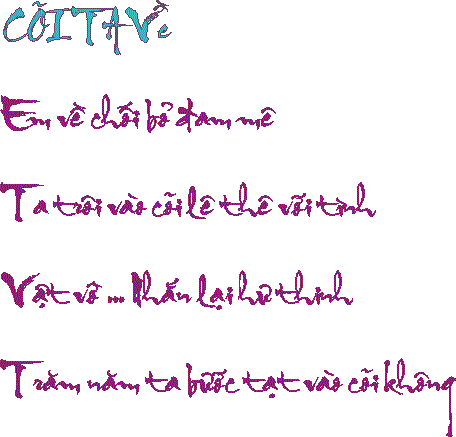 CÕI TA VỀ
Em về chối bỏ đam mê
Ta trôi vào cõi lê thê với tình
Vật vờ ... Nhắn lại hư thinh
Trăm năm ta bước tạt vào cõi không